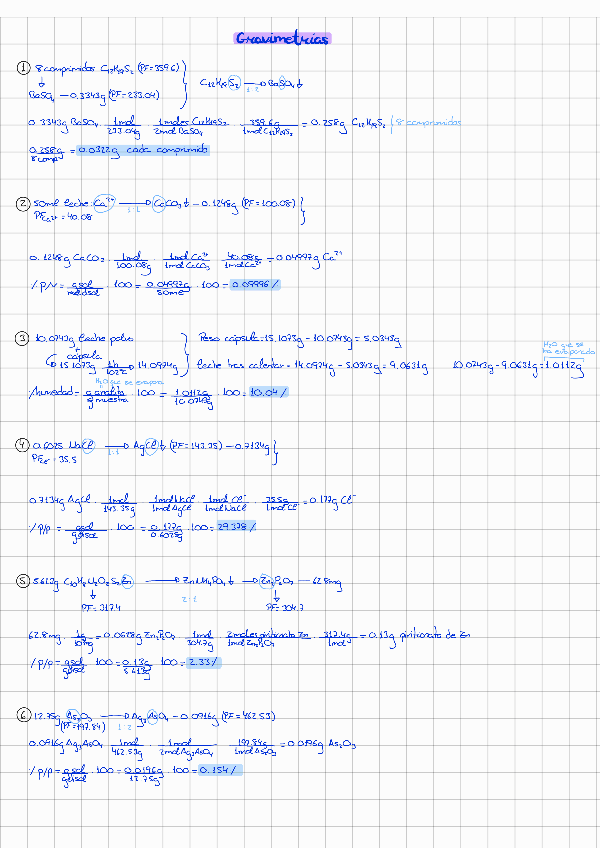 Gravimetrías
① 8 comprimidos C12H19S2 (PF=359.6)
C12H19S2 → BaSO4↓
1:2
BaSO4 – 0.3343g (PF=233.04)
0.3343g BaSO4 · 1mol/233.04g · 1moles C12H19S2/2mol BaSO4 · 359.6g/1mol C12H19S2 = 0.258g C12H19S2 / 8 comprimidos
0.258g/8comp = 0.0322g cada comprimido
② 50ml leche: Ca2+ → CaCO3↓ – 0.1248g (PF=100.08)
1:1
PFCa2+ = 40.08
0.1248g CaCO3 · 1mol/100.08g · 1mol Ca2+/1mol CaCO3 · 40.08g/1mol Ca2+ = 0.04997g Ca2+
/ P/V = g sol/ml disol · 100 = 0.04997g/50ml · 100 = 0.09996 /
③ 10.0743g leche polvo
+ cápsula
15.1073g 1h/102ºC → 14.0974g
Peso cápsula = 15.1073g – 10.0743g = 5.0343g
leche tras calentar = 14.0974g – 5.0343g = 9.0631g
10.0743g – 9.0631g = 1.0112g
H2O que se ha evaporado
H2O que se evapora
/ Humedad = g analito/g muestra · 100 = 1.0112g/10.0743g · 100 = 10.04 /
④ 0.6025 NaCl → AgCl↓ (PF=143.35) – 0.7134g
1:1
PFCl- = 35.5
0.7134g AgCl · 1mol/143.35g · 1mol NaCl/1mol AgCl · 1mol Cl-/1mol NaCl · 35.5g/1mol Cl- = 0.177g Cl-
/ P/P = g sol/g disol · 100 = 0.177g/0.6025g · 100 = 29.378 /
⑤ 5.613g C10H8N2O2S2Zn → ZnNH4PO4↓ → Zn2P2O7 – 62.8mg
2:1
PF=317.4
PF=304.7
62.8mg · 1g/10³mg = 0.0628g Zn2P2O7 · 1mol/304.7g · 2moles piritionato Zn/1mol Zn2P2O7 · 317.4g/1mol = 0.13g piritionato de Zn
/ P/P = g sol/g disol · 100 = 0.13g/5.613g · 100 = 2.33 /
⑥ 12.75g As2O3 → Ag3AsO4 – 0.0916g (PF=462.53)
(PF=197.84) 1:2
0.0916g Ag3AsO4 · 1mol/462.53g · 1mol/2mol Ag3AsO4 · 197.84g/1mol As2O3 = 0.0196g As2O3
/ P/P = g sol/g disol · 100 = 0.0196g/12.75g · 100 = 0.154 /